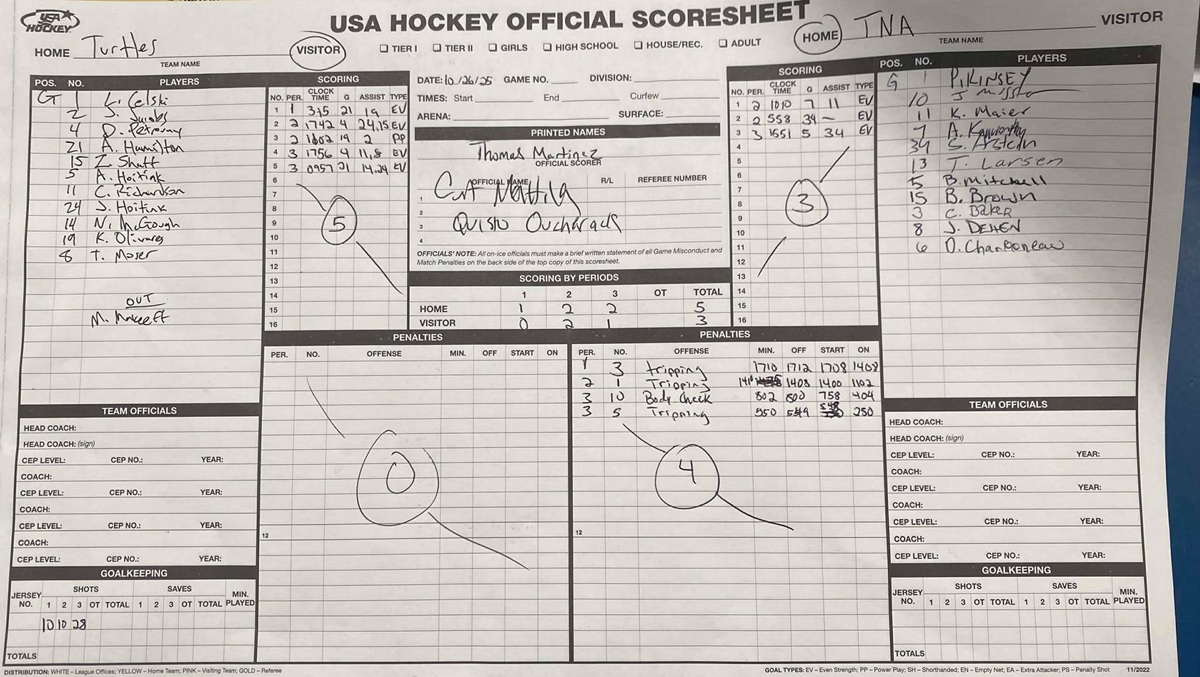 USA HOCKEY
USA HOCKEY OFFICIAL SCORESHEET
HOME Turtles
TEAM NAME
VISITOR
☐ TIER I ☐ TIER II ☐ GIRLS ☐ HIGH SCHOOL ☐ HOUSE/REC. ☐ ADULT
HOME TNA
TEAM NAME
VISITOR
POS. NO. PLAYERS
G 1 K. Celski
2 S. Jacobs
4 D.
21 A. Hamilton
15 Z. Shaft
5 A. Hoitink
11 C. Richardson
24 J. Hoitink
14 N. McGough
19 K. Olivares
8 T. Moser
OUT
M.
SCORING
NO. PER. CLOCK TIME G ASSIST TYPE
1 1 315 21 19 EV
2 2 1742 4 24,15 EV
3 2 1602 19 2 PP
4 3 1756 4 11,8 EV
5 3 0957 21 14,24 EV
6
7
8
9
10
11
12
13
14
15
16
5
DATE: 10/26/25 GAME NO. DIVISION:
TIMES: Start End Curfew
ARENA: SURFACE:
PRINTED NAMES
Thomas Martinez
OFFICIAL SCORER
OFFICIAL NAME R/L REFEREE NUMBER
1
2
3
4
Curt Mattila
Quisto
OFFICIALS' NOTE: All on-ice officials must make a brief written statement of all Game Misconduct and
Match Penalties on the back side of the top copy of this scoresheet.
SCORING BY PERIODS
1 2 3 OT TOTAL
HOME 1 2 2 5
VISITOR 0 2 1 3
SCORING
NO. PER. CLOCK TIME G ASSIST TYPE
1 2 1010 7 11 EV
2 2 558 34 – EV
3 3 1551 5 34 EV
4
5
6
7
8
9
10
11
12
13
14
15
16
3
POS. NO. PLAYERS
G 1 P. KINSEY
10 J.
11 K. Maier
7 A.
34 S.
13 T. Larsen
5 B. Mitchell
15 B. Brown
3 C. BAKER
8 J. DEHEN
6 D. Charboneau
PENALTIES
PER. NO. OFFENSE MIN. OFF START ON
12
0
PENALTIES
PER. NO. OFFENSE MIN. OFF START ON
1 3 tripping 1710 1712 1708 1408
2 1 Tripping 1410 1408 1400 1102
3 10 Body Check 802 800 758 404
3 5 Tripping 550 549 548 250
12
4
TEAM OFFICIALS
HEAD COACH:
HEAD COACH: (sign)
CEP LEVEL: CEP NO.: YEAR:
COACH:
CEP LEVEL: CEP NO.: YEAR:
COACH:
CEP LEVEL: CEP NO.: YEAR:
COACH:
CEP LEVEL: CEP NO.: YEAR:
GOALKEEPING
JERSEY NO. SHOTS SAVES MIN. PLAYED
1 2 3 OT TOTAL 1 2 3 OT TOTAL
10 10 28
TOTALS
TEAM OFFICIALS
HEAD COACH:
HEAD COACH: (sign)
CEP LEVEL: CEP NO.: YEAR:
COACH:
CEP LEVEL: CEP NO.: YEAR:
COACH:
CEP LEVEL: CEP NO.: YEAR:
COACH:
CEP LEVEL: CEP NO.: YEAR:
GOALKEEPING
JERSEY NO. SHOTS SAVES MIN. PLAYED
1 2 3 OT TOTAL 1 2 3 OT TOTAL
TOTALS
DISTRIBUTION: WHITE – League Offices; YELLOW – Home Team; PINK – Visiting Team; GOLD – Referee
GOAL TYPES: EV – Even Strength; PP – Power Play; SH – Shorthanded; EN – Empty Net; EA – Extra Attacker; PS – Penalty Shot 11/2022